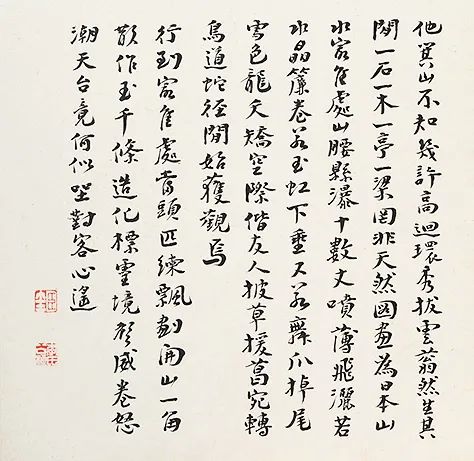 箕山不知幾許高迴環秀拔雲蓊然生其
間一石一木一亭一梁罔非天然圖畫為日本山
水最佳處山腰縣瀑十數丈噴薄飛灑若
水晶簾卷若玉虹下垂又若舞爪掉尾
雪色龍夭矯空際偕友人披草援葛宛轉
鳥道蛇徑間始獲觀焉
行到最佳處當頭匹練飄劃開山一角
散作玉千條造化標靈境聲威卷怒
潮天台竟何似坐對客心遙